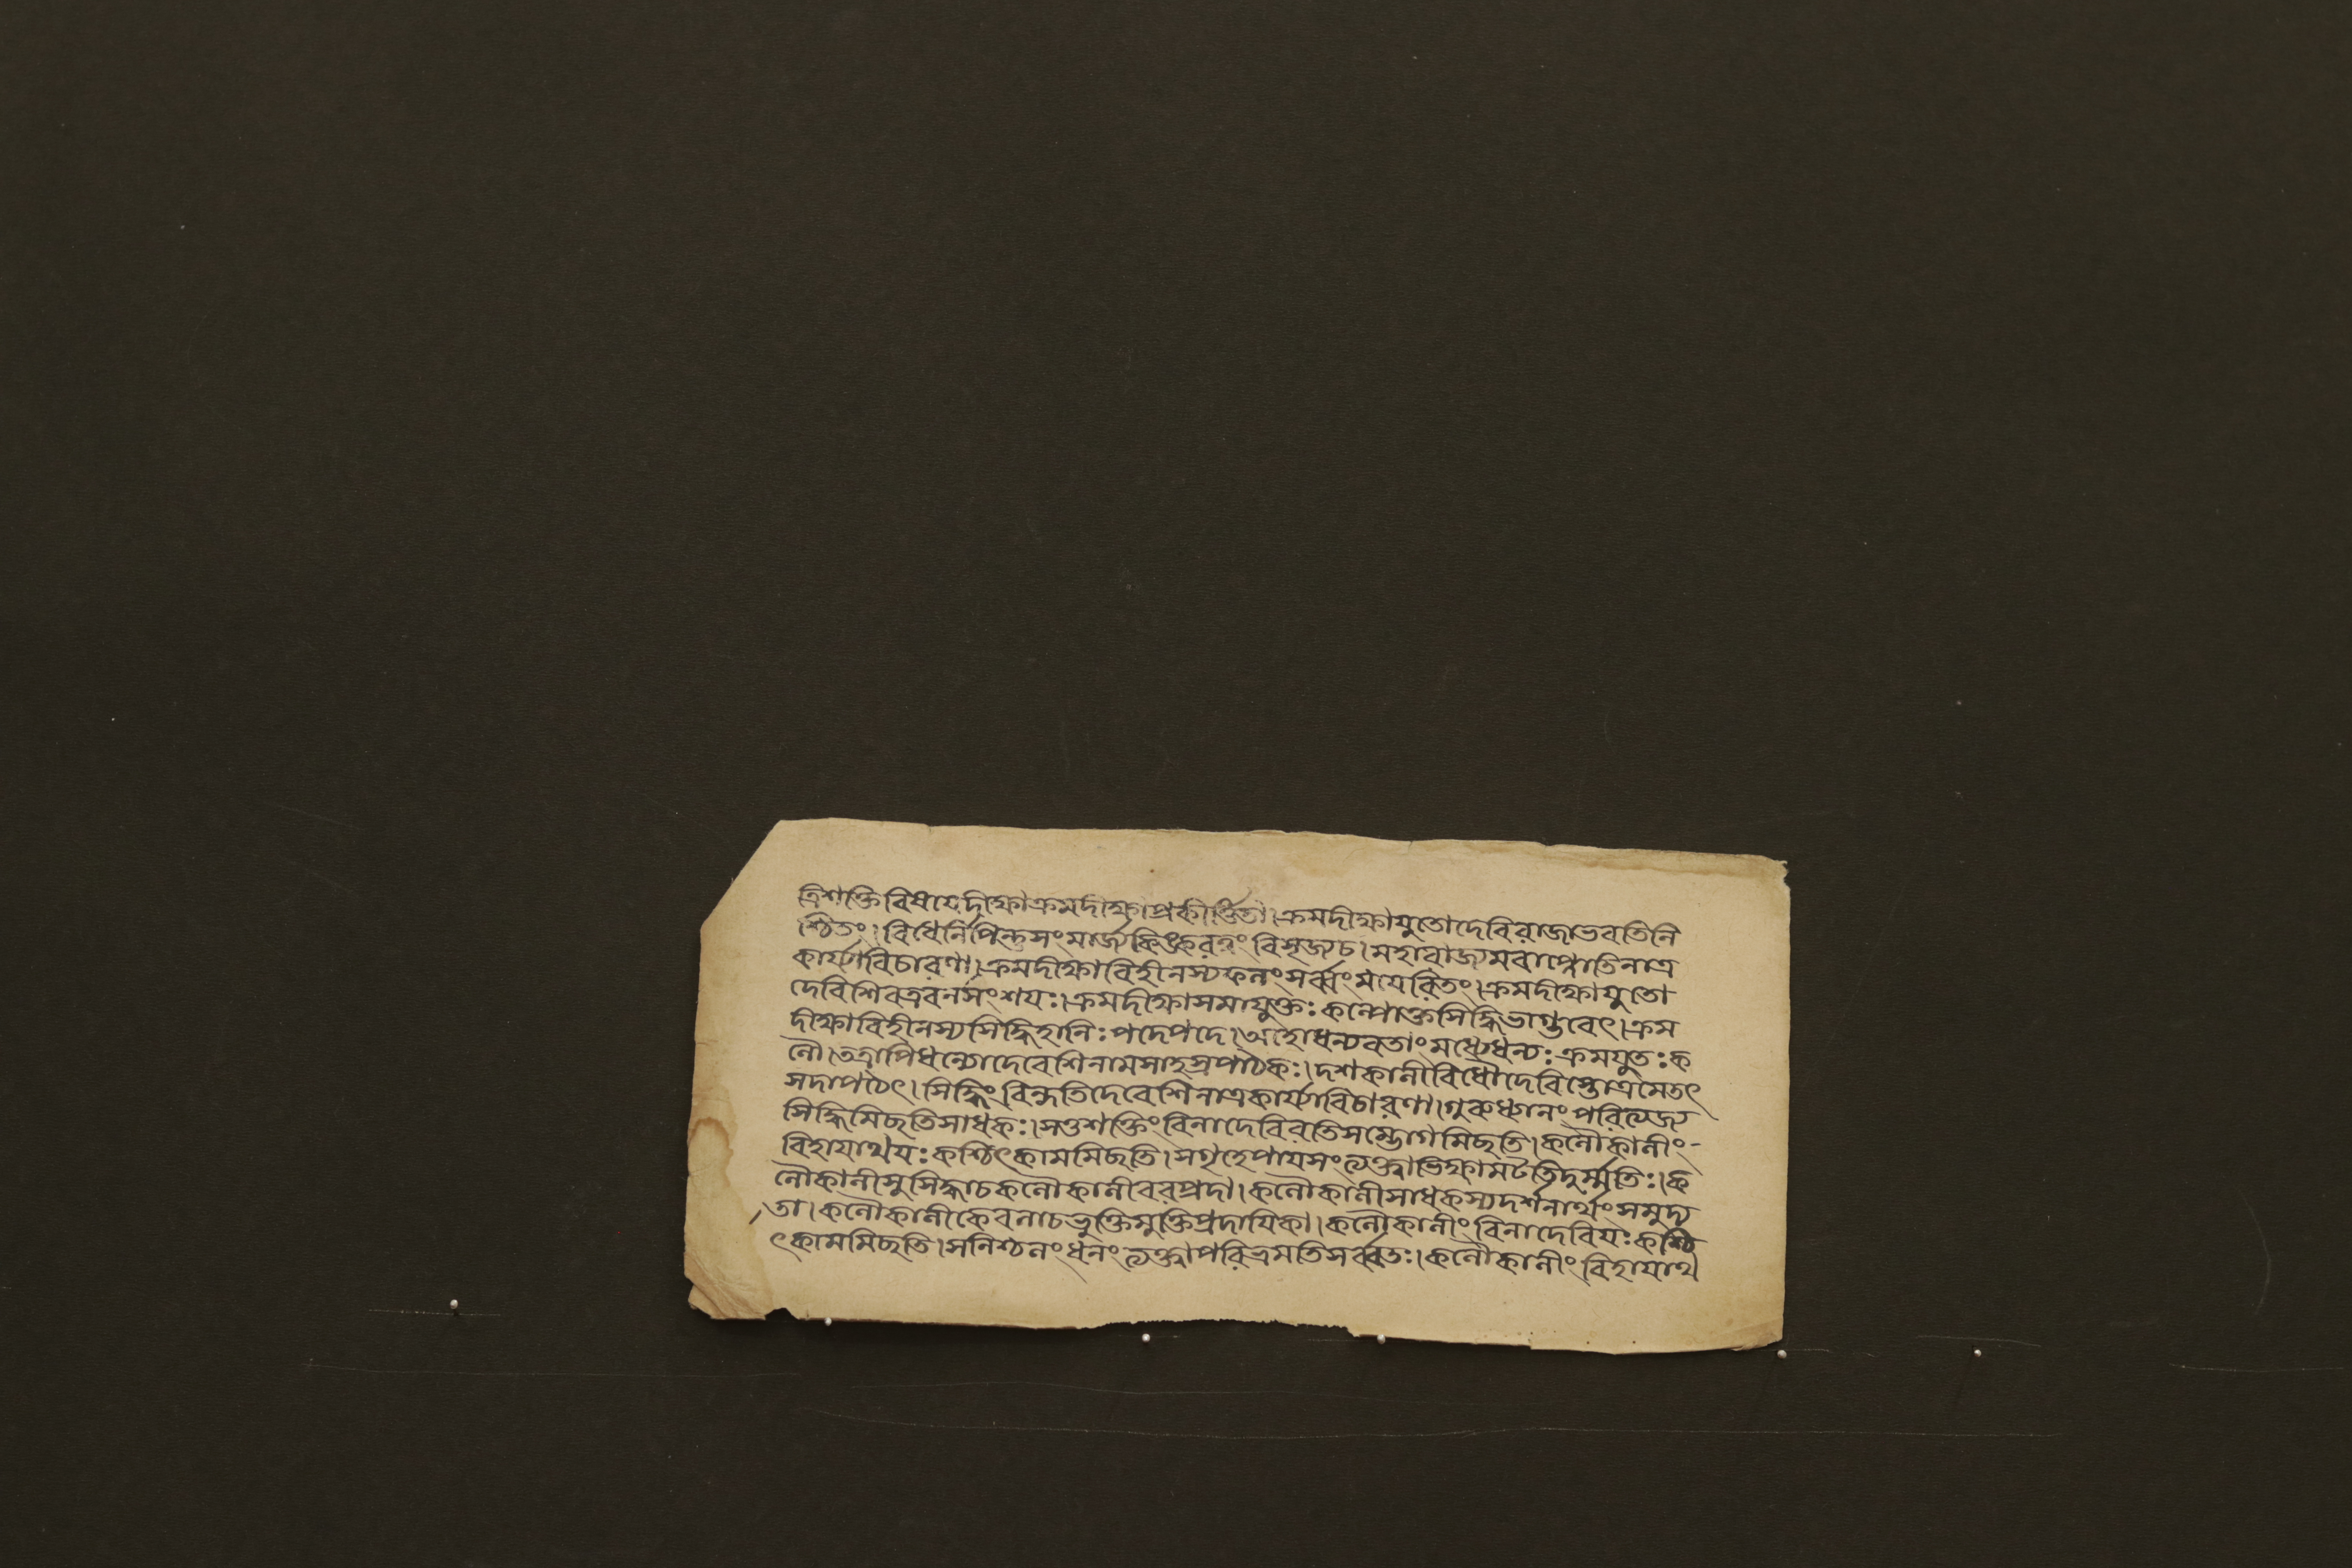 ত্রিশক্তিবিষযেদীক্ষাক্রমদীক্ষাপ্রকীর্ত্তিতা।ক্রমদীক্ষাযুতোদেবিরাজাভবতিনি
শ্চিতং।বিধের্লিপিন্তুসংমার্জ্যকিঙ্করত্বংবিসৃজ্যচ।মহারাজ্যমবাপ্নোতিনাত্র
কার্য্যাবিচারণা।ক্রমদীক্ষাবিহীনস্যফলংসর্ব্বংমযেরিতং।ক্রমদীক্ষাযুতো
দেবিশিবএবনসংশযঃ।ক্রমদীক্ষাসমাযুক্তঃকল্পোক্তসিদ্ধিভাগ্ভবেৎ।ক্রম
দীক্ষাবিহীনস্যসিদ্ধিহানিঃপদেপদে।অহোধন্যবতাংমধ্যেধন্যঃক্রমযুতঃক
লৌ।তত্রাপিধন্যোদেবেশিনামসাহস্রপাঠকঃ।দশকালীবিধৌদেবিস্তোত্রমেতৎ
সদাপঠেৎ।সিদ্ধিংবিন্দতিদেবেশিনাত্রকার্য্যাবিচারণা।গুরুধ্যানংপরিত্যজ্য
সিদ্ধিমিছতিসাধকঃ।সতুশক্তিংবিনাদেবিরতিসম্ভোগমিছতি।কলৌকালীং-
বিহাযাথযঃকশ্চিৎকামমিছতি।সগৃহেপাযসংত্যক্ত্বাভিক্ষামটতিদুর্ম্মতিঃ।ক
লৌকালীসুসিদ্ধাচকলৌকালীবরপ্রদা।কলৌকালীসাধকস্যদর্শনার্থংসমুদ্য
তা।কলৌকালীকেবলাচভুক্তিমুক্তিপ্রদাযিকা।কলৌকালীংবিনাদেবিযঃকশ্চি
ৎকামমিছতি।সনিশ্চলংধনংত্যক্ত্বাপরিভ্রমতিসর্ব্বতঃ।কলৌকালীংবিহাযাথ